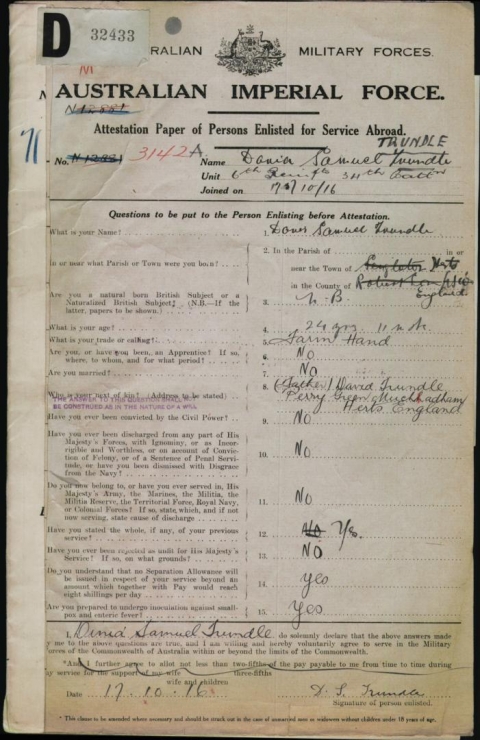 D 32433
AUSTRALIAN MILITARY FORCES.
M
AUSTRALIAN IMPERIAL FORCE.
N12831
Attestation Paper of Persons Enlisted for Service Abroad.
TRUNDLE
No. N12831 3142A Name Samuel Trundle
Unit 6th Reinfts 34th Battn
Joined on 17/10/16
Questions to be put to the Person Enlisting before Attestation.
What is your Name? 1. Samuel Trundle
In or near what Parish or Town were you born? 2. In the Parish of in or
near the Town of Herts
in the County of England
Are you a natural born British Subject or a
Naturalized British Subject? (N.B.—If the
latter, papers to be shown.) 3. N. B.
What is your age? 4. 24 yrs. 11 mths
What is your trade or calling? 5. Farm Hand
Are you, or have you been, an Apprentice? If so,
where, to whom, and for what period? 6. No
Are you married? 7. No
Who is your next of kin? (Address to be stated) 8. (Father) David Trundle
THE ANSWER TO THIS QUESTION SHALL NOT
BE CONSTRUED AS IN THE NATURE OF A WILL
Perry Green Much Hadham
Herts England
Have you ever been convicted by the Civil Power? 9. No
Have you ever been discharged from any part of His
Majesty's Forces, with Ignominy, or as Incor-
rigible and Worthless, or on account of Convic-
tion of Felony, or of a Sentence of Penal Servi-
tude, or have you been dismissed with Disgrace
from the Navy? 10. No
Do you now belong to, or have you ever served in, His
Majesty's Army, the Marines, the Militia, the
Militia Reserve, the Territorial Force, Royal Navy,
or Colonial Forces? If so, state which, and if not
now serving, state cause of discharge 11. No
Have you stated the whole, if any, of your previous
service? 12. No Yes.
Have you ever been rejected as unfit for His Majesty's
Service? If so, on what grounds? 13. No
Do you understand that no Separation Allowance will
be issued in respect of your service beyond an
amount which together with Pay would reach
eight shillings per day 14. yes
Are you prepared to undergo inoculation against small-
pox and enteric fever? 15. Yes
I, Samuel Trundle do solemnly declare that the above answers made
by me to the above questions are true, and I am willing and hereby voluntarily agree to serve in the Military
Forces of the Commonwealth of Australia within or beyond the limits of the Commonwealth.
*And I further agree to allot not less than two-fifths of the pay payable to me from time to time during
three-fifths
my service for the support of my wife
wife and children
Date 17.10.16 D. S. Trundle
Signature of person enlisted.
* This clause to be added where necessary and should be struck out in the case of unmarried men or widowers without children under 18 years of age.